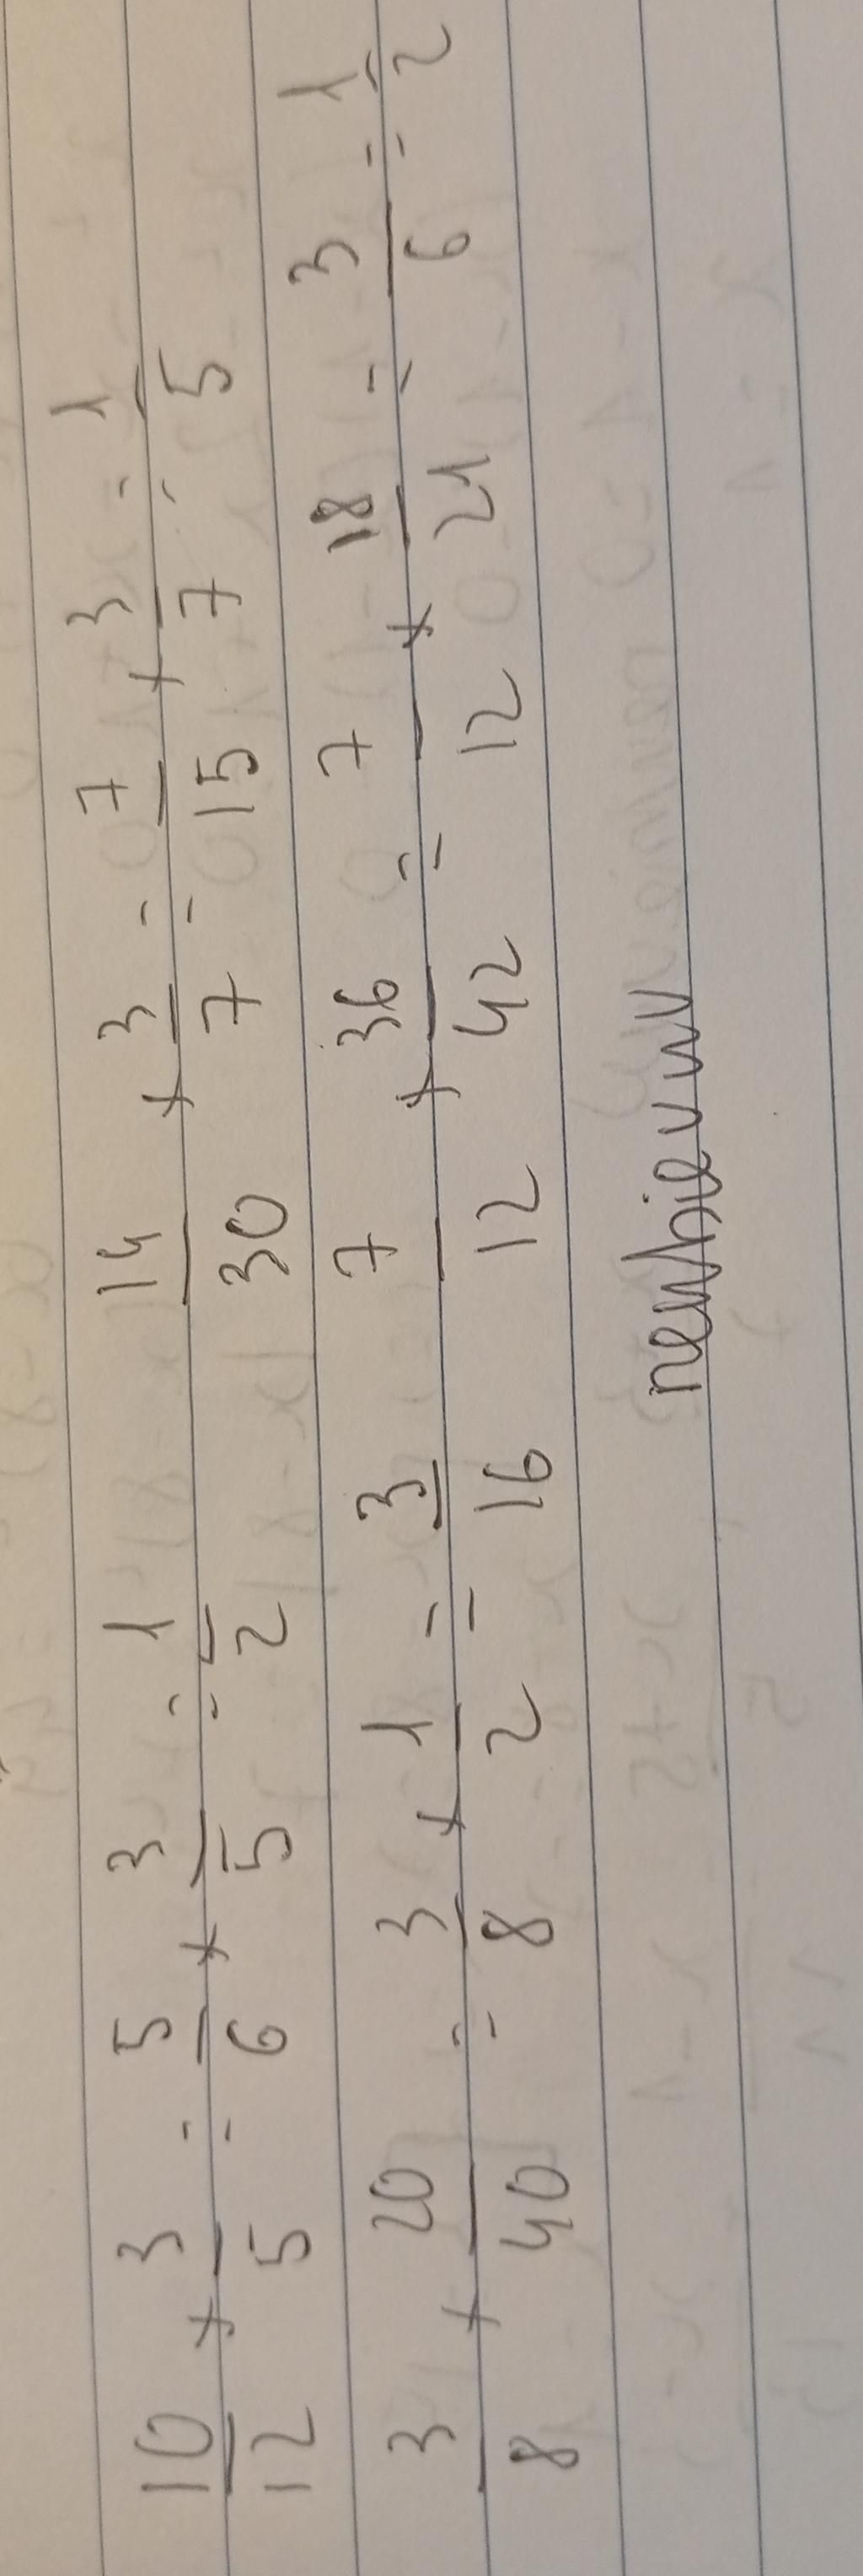 10/12 × 3/5 = 5/6 × 3/5 = 1/2 14/30 × 3/7 = 7/15 × 3/7 = 1/5
3/8 × 20/40 = 3/8 × 1/2 = 3/16 7/12 × 36/42 = 7/12 × 18/21 = 3/6 = 1/2
newbievnw